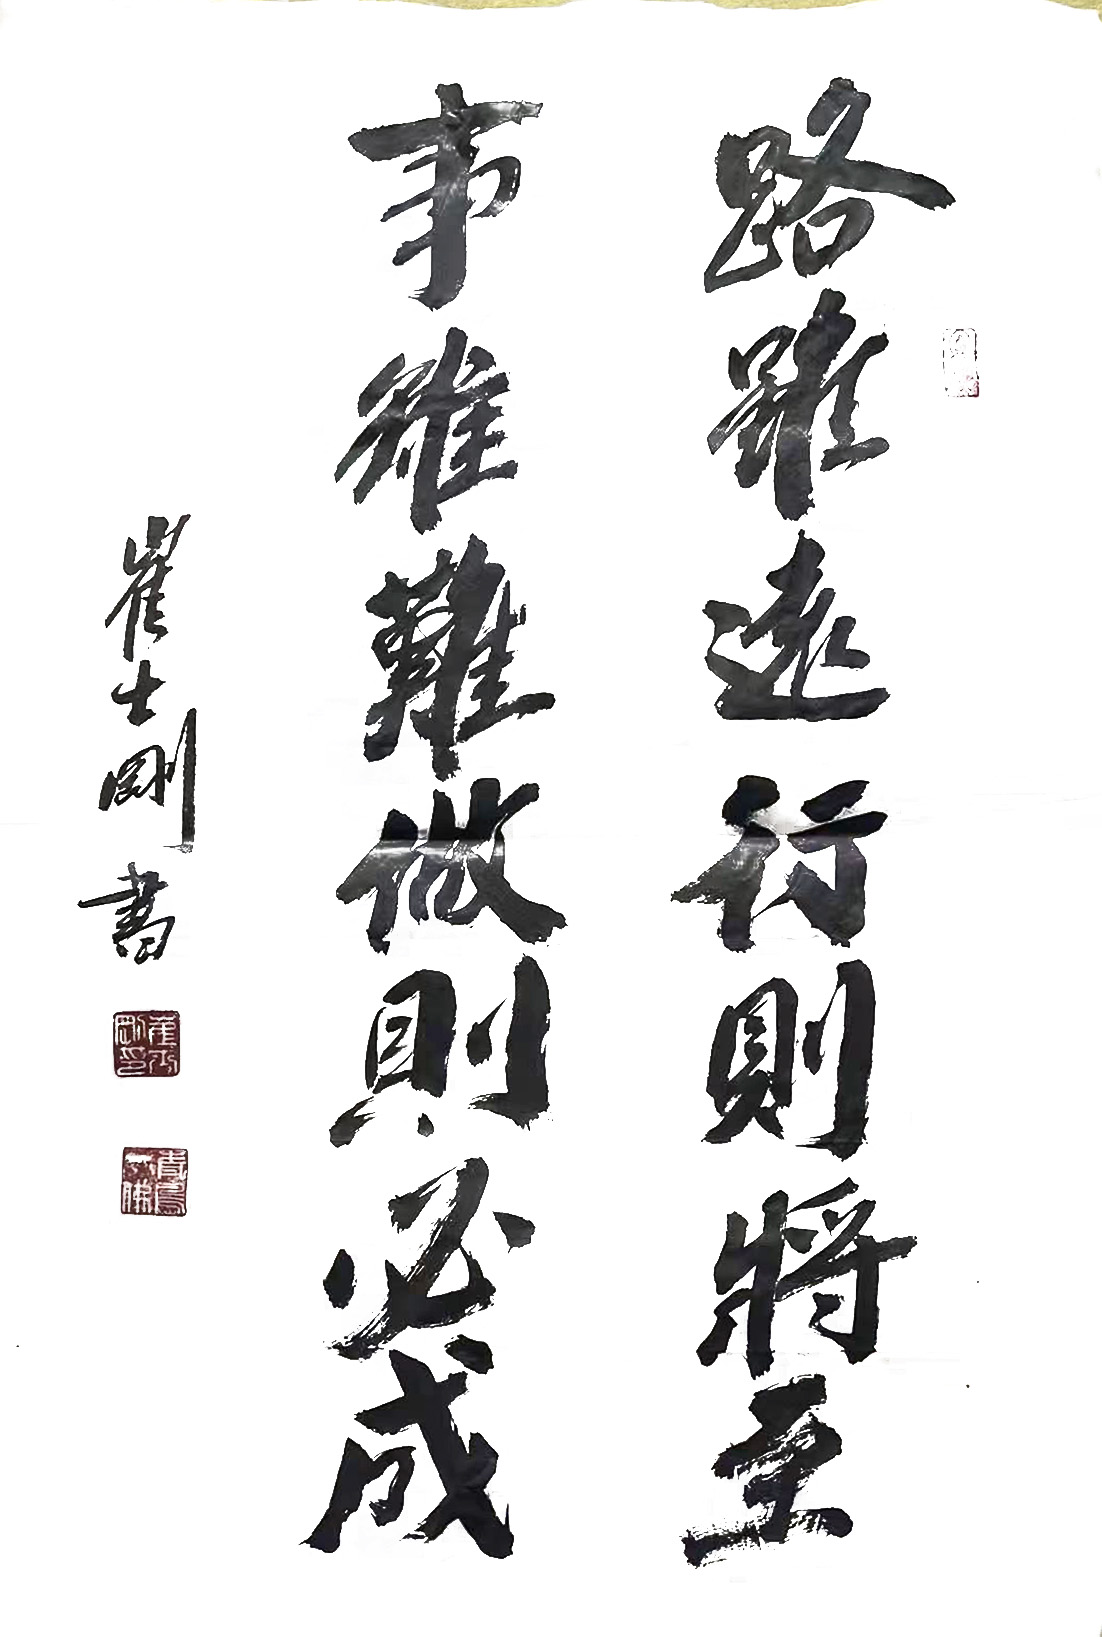 路雖遠行則將至
事雖難做則必成
崔士剛書